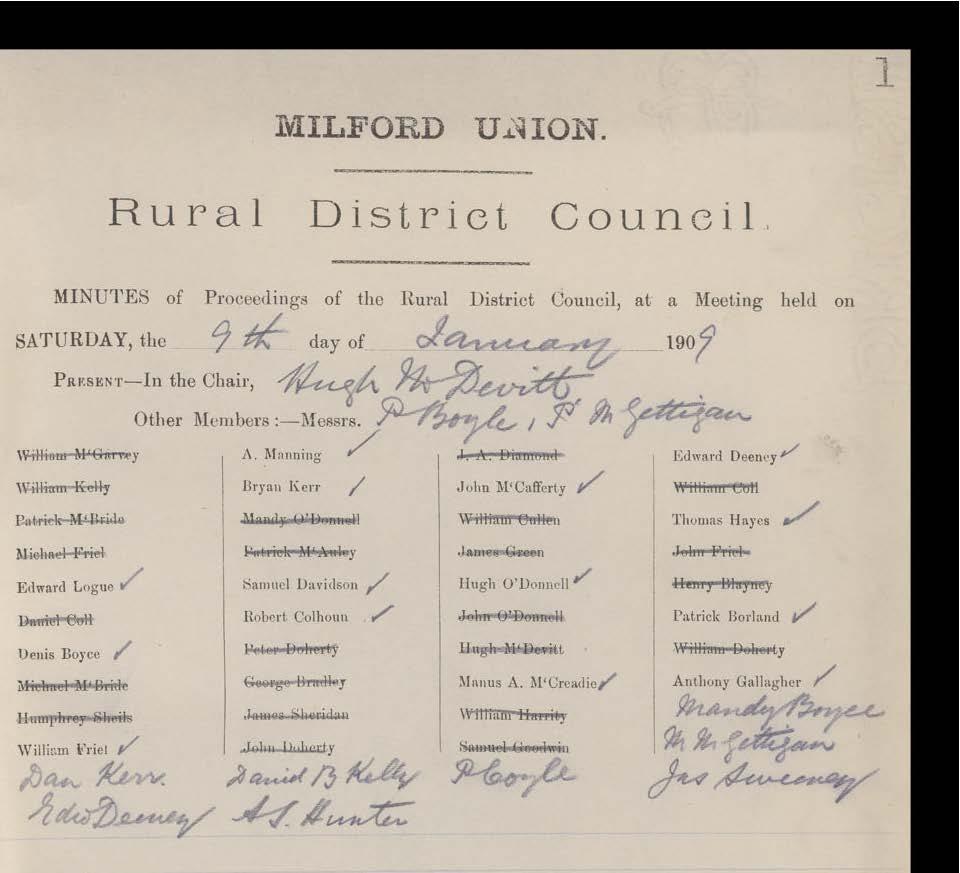 1
MILFORD UNION.
Rural District Council.
MINUTES of Proceedings of the Rural District Council, at a Meeting held on
SATURDAY, the 9th day of January 1909
PRESENT—In the Chair, Hugh McDevitt
Other Members :—Messrs. P Boyle, P McGettigan
William M‘Garvey
William Kelly
Patrick M‘Bride
Michael Friel
Edward Logue ✓
Daniel Coll
Denis Boyce ✓
Michael M‘Bride
Humphrey Sheils
William Friel ✓
A. Manning ✓
Bryan Kerr ✓
Mandy O’Donnell
Patrick M‘Auley
Samuel Davidson ✓
Robert Colhoun ✓
Peter Doherty
George Bradley
James Sheridan
John Doherty
J. A. Diamond
John M‘Cafferty ✓
William Cullen
James Green
Hugh O’Donnell ✓
John O’Donnell
Hugh M‘Devitt
Manus A. M‘Creadie ✓
William Harrity
Samuel Goodwin
Edward Deeney ✓
William Coll
Thomas Hayes ✓
John Friel
Henry Blayney
Patrick Borland ✓
William Doherty
Anthony Gallagher ✓
Mandy Boyce
M McGettigan
Dan Kerr. David B Kelly P Coyle Jas Sweeney
Edw Deeney A S. Hunter